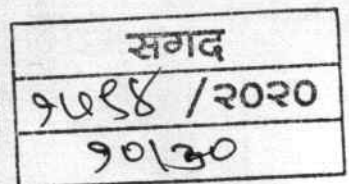 सगद
१७९४ /२०२०
१०|३०